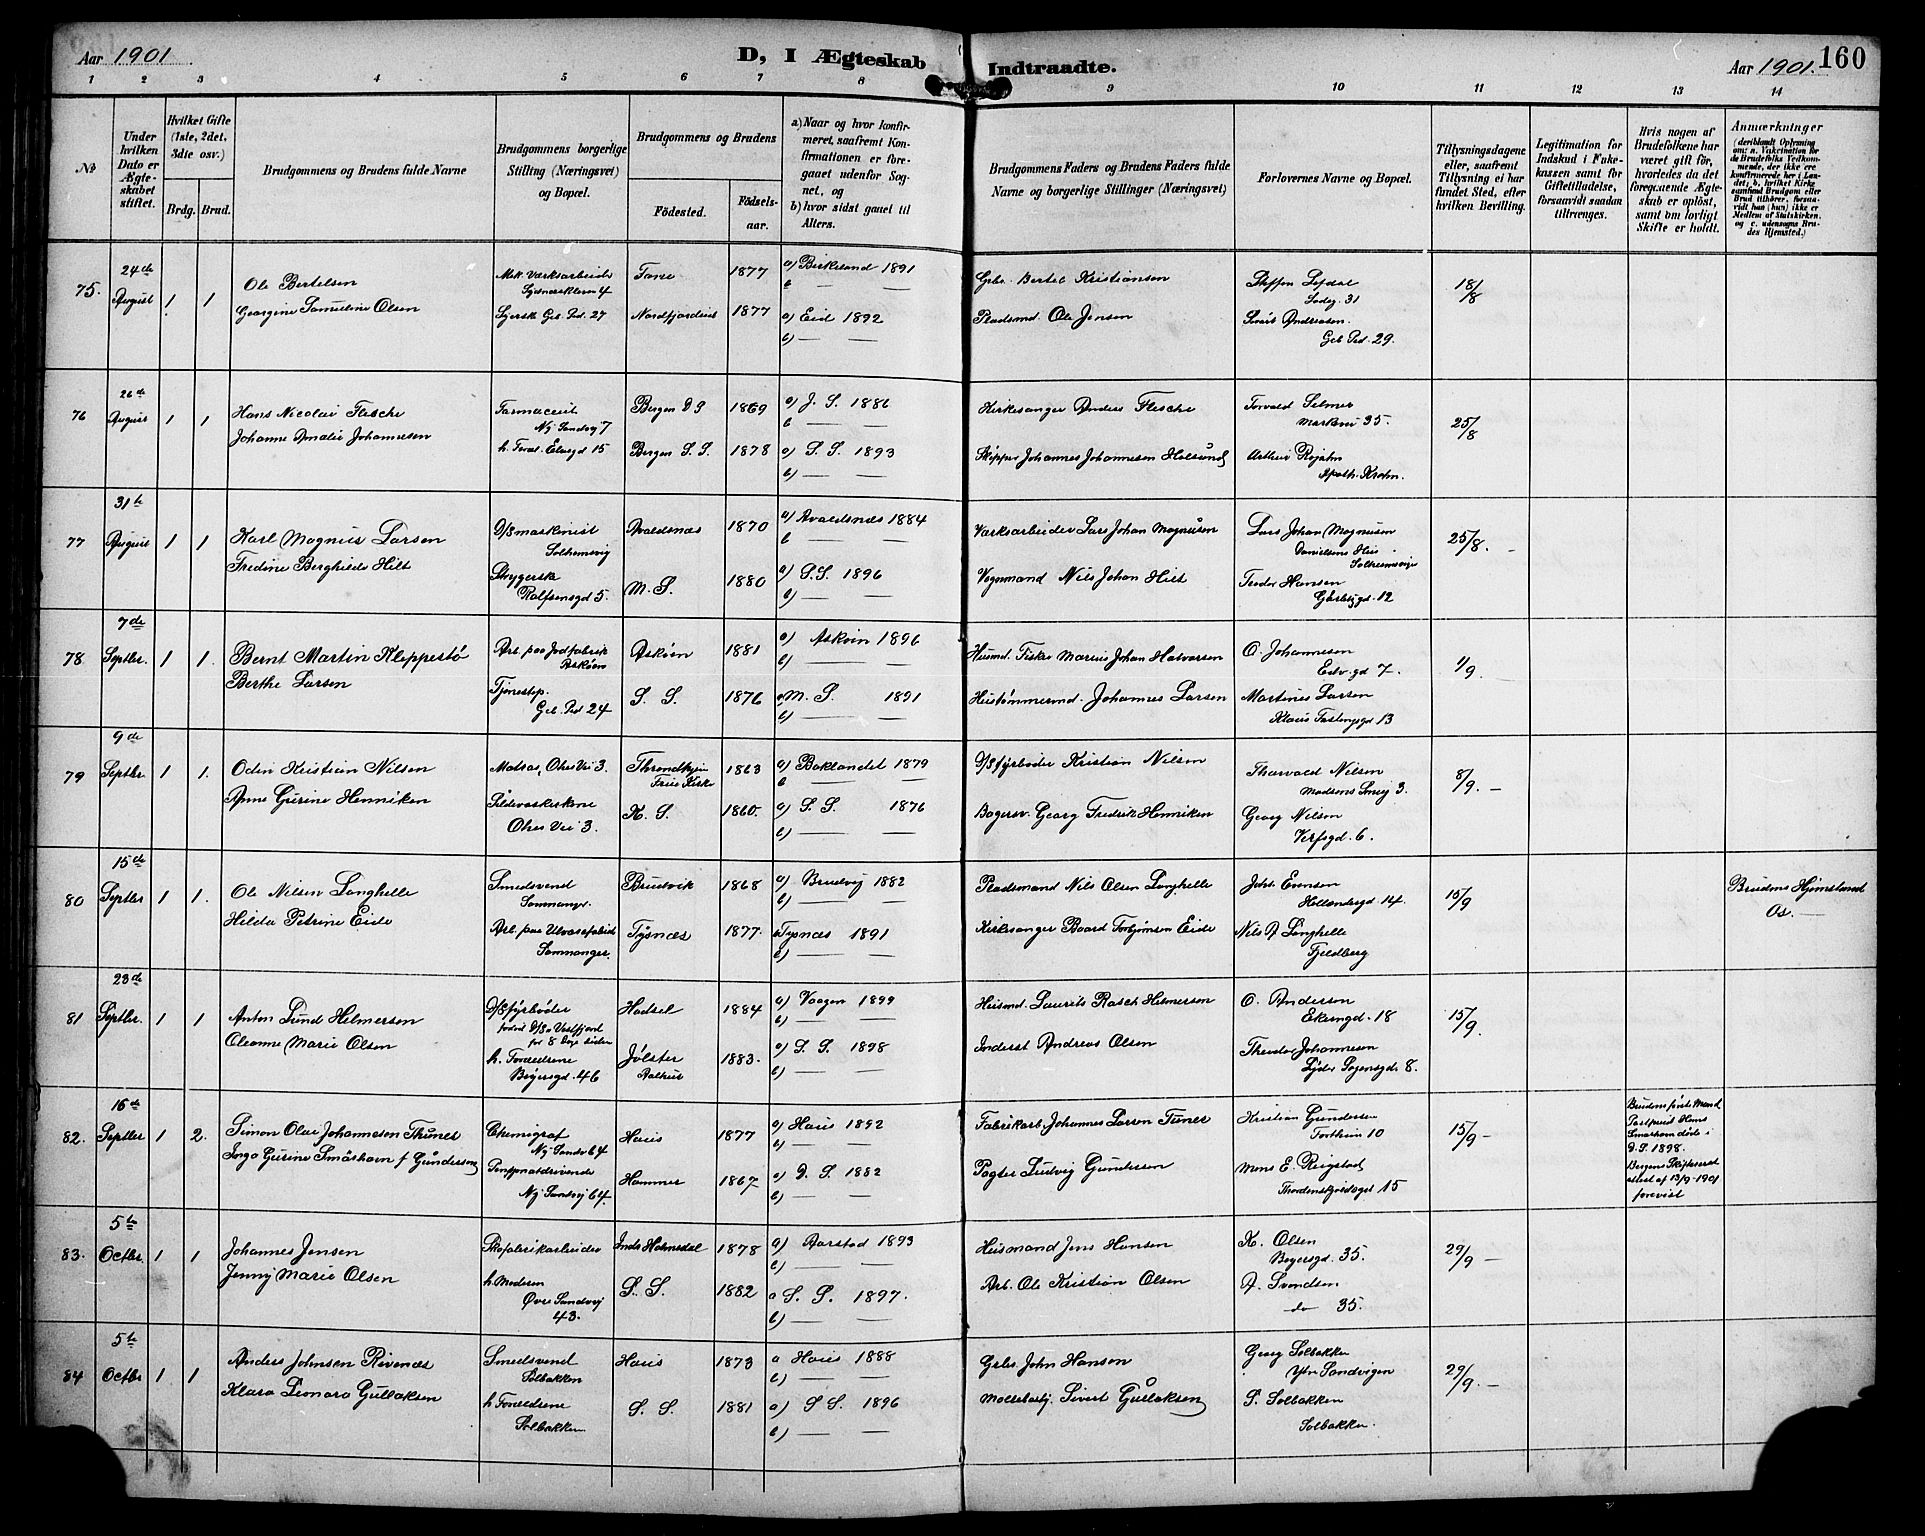 Aar 1901
D, I Ægteskab Indtraadte.
Aar 1901. 160
1 2 3 4 5 6 7 8 9 10 11 12 13 14
No
Under hvilken Dato er Ægteskabet stiftet.
Hvilket Gifte (1ste, 2det, 3die osv.)
Brdg. Brud.
Brudgommens og Brudens fulde Navne
Brudgommens borgerlige Stilling (Næringsvei) og Bopæl.
Brudgommens og Brudens
Födested.
Födselsaar.
a) Naar og hvor konfirmeret, saafremt Konfirmationen er foregaaet udenfor Sognet, og
b) hvor sidst gaaet til Alters.
Brudgommens Faders og Brudens Faders fulde Navne og borgerlige Stillinger (Næringsvei)
Forlovernes Navne og Bopæl.
Tillysningsdagene eller, saafremt Tillysning ei har fundet Sted, efter hvilken Bevilling.
Legitimation for Indskud i Enkekassen samt for Giftetilladelse, forsaavidt saadan tiltrænges.
Hvis nogen af Brudefolkene har været gift för, hvorledes da det foregaaende Ægteskab er oplöst, samt om lovligt Skifte er holdt.
Anmærkninger
75. 24de August 1 1
Ole Bertelsen
Georgine Samueline Olsen
Mek. Værksarbeider
Syerske Geb. Ped. 27
Nordfjordeid
1877
1877
a) Birkeland 1891
b — —
a) Eid 1892
b) — —
Grbr. Bertel Kristiansen
Pladsmd. Ole Jensen
Steffen
31
Andreasen
Geb Ped. 29.
18/8
76 26de August 1 1
Hans Nicolai Flesche
Johanne Amalie Johannesen
Farmaceut
Ny Sandvg 7
15
Bergen D S 1869
Bergen S. S. 1878
a) J. S. 1886
b — —
a) S. S. 1893
b) — —
Kirkesanger Anders Flesche
Skipper Johannes Johannesen
Torvald Selmer
Markvei 35.
Apoth. Krohn.
25/8
77 31te August 1 1
Karl Magnus Larsen
Fredine Berghilde Hilt
D/S maskinist
Solheimsvig
Strygerske
Ralfsensgd 5.
Avaldsnæs 1870
M. S. 1880
a) Avaldsnæs 1884
b — —
a) S.S. 1896
b) — —
Værksarbeider Lars Johan Magnusen
Vognmand Nils Johan Hilt
Lars Johan Magnusen
Danielsens Hus
Solheimsvig
Teodor Hansen
12
25/8.
78. 7de Septbr. 1 1.
Bernt Martin Kleppestø
Berthe Larsen
Arb. paa Jodfabrik
Askøen
Tjenestep.
Geb. Ped 24
Askøen 1881
S. S. 1876
a) Askøen 1896
b) — —
a) M. S. 1891
b) — —
Husmd. Fisker Marius Johan Halvorsen
Hustømmermd. Johannes Larsen
O. Johannesen
7
Martinus Larsen
Klaus 13
1/9.
79 9de Septbr. 1 1.
Odin Kristian Nilsen
Anne Gurine Henriksen
Matros,
Vei 3.
Vei 3.
Throndhjem
Frue Kirke
1863
K. S. 1860.
a) Baklandet 1879
b — —
a) S. S. 1876
b) — —
D/S fyrbøder Kristian Nilsen
Bagersv. Georg Fredrik Henriksen
Thorvald Nilsen
Madsens Smug 3.
Georg Nilsen
Verftsgd. 6.
8/9. —
80 15de Septbr 1 1.
Ole Nilsen Langhelle
Hilda Petrine Eide
Smedsvend
Samnanger.
Arb. paa Ulvarefabrik
Samnanger.
Brudvik 1868
Tysnæs 1877.
a) Brudvig 1882
b) — —
a Tysnæs 1891
b) — —
Pladsmand Nils Olsen Langhelle
Kirkesanger Baard Torbjørnsen Eide
Johs. Evensen
Hollendergd. 14
Nils A Langhelle
Fjeldberg
15/9
Brudens Hjemstavn
Os. —
81 23de Septbr. 1 1
Anton Lund Helmersen
Oleanne Marie Olsen
D/S fyrbøder
for 8 Dage siden
h. Forældrene
Bøyersgd. 46
Hadsel 1884
Jølster
Aalhus
1883.
a) Vaagen 1899
b) — —
a) S. S. 1898
b) — —
Husmd. Laurits Rasch Helmersen
Inderst Andreas Olsen
O. Anderson
Ekrengd. 18
Theodor Johannesen
Lyder Sagensgd. 8.
15/9.
82. 16de Septbr 1 2.
Simon Olai Johannesen Thunes
Inga Gurine Småshavn f Gundersen
Chemigraf
Ny Sandv 64
Pensjonatdrivende
Ny Sandvg 64.
Haus 1877
Hammer 1867
a) Haus 1892
b) — —
a) D. S. 1882
b) — —
Fabrikarb. Johannes Larsen Tunes
Pagter Ludvig Gundersen
Kristian Gundersen
10
Mons E. Rigstad
Thordenskjoldsgd 15
15/9 —
Brudens første Mand
døde i
D.S. 1898.
Bergens Skifteret
attest af 13/9-1901
forevist
83. 5te Octbr. 1 1
Johannes Jensen
Jenny Marie Olsen
Skofabrikarbeider
h Moderen
Øvre Sandvg
43.
Indr Holmedal 1878
S. S. 1882
a) Aarstad 1893
b) — —
a S. S. 1897.
b) — —
Husmand Jens Hansen
Arb. Ole Kristian Olsen
K. Olsen
Bøyersgd. 35.
A. Svendsen
do 35.
29/9 —
84 5te Octbr 1 1
Anders Johnsen Rivenæs
Klara Leonara Gullaksen
Smedsvend
Solbakken
h Forældrene
Solbakken
Haus 1873
S. S. 1881
a Haus 1888
b) — —
a) S S. 1896
b) — —
Grbr. John Hansen
Sivert Gullaksen
Georg Solbakken
Ytre Sandvigen
S. Solbakken
Solbakken.
29/9. —